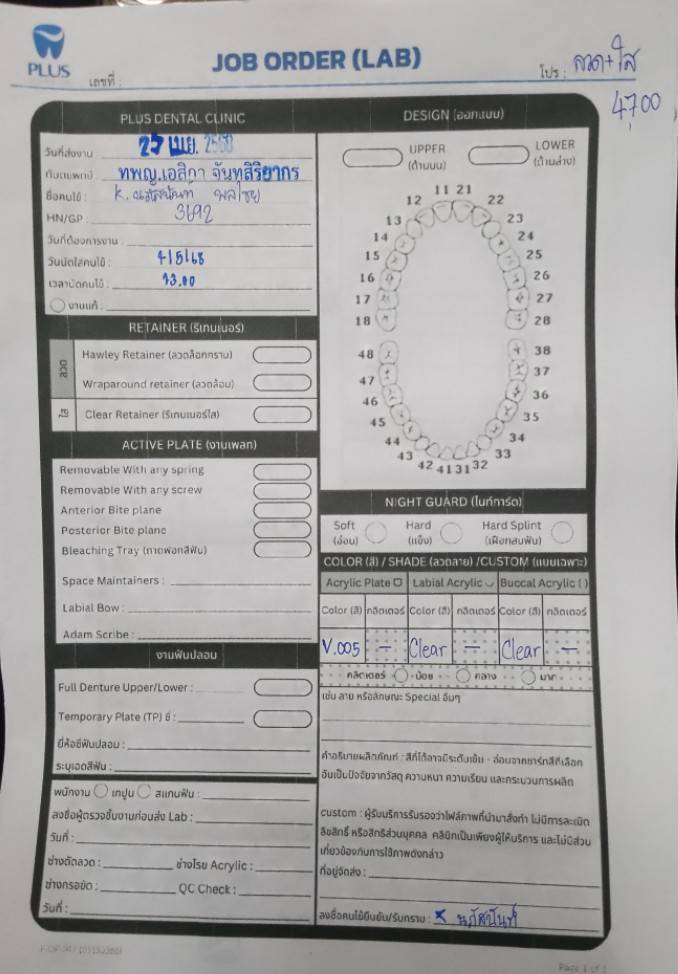 PLUS
JOB ORDER (LAB)
เลขที่ :
โปร : ลวด+ใส
4,700
PLUS DENTAL CLINIC
วันที่ส่งงาน : 27 เม.ย. 2568
ทันตแพทย์ : ทพญ.เอสิกา จันทสิริยากร
ชื่อคนไข้ : K.
HN/GP : 3692
วันที่ต้องการงาน :
วันนัดใส่คนไข้ : 4/5/68
เวลานัดคนไข้ : 13.00
งานแก้ :
RETAINER (รีเทนเนอร์)
ลวด
Hawley Retainer (ลวดล็อกกราม)
Wraparound retainer (ลวดล้อม)
ใส
Clear Retainer (รีเทนเนอร์ใส)
ACTIVE PLATE (งานเพลท)
Removable With any spring
Removable With any screw
Anterior Bite plane
Posterior Bite plane
Bleaching Tray (ถาดฟอกสีฟัน)
Space Maintainers :
Labial Bow :
Adam Scribe :
งานฟันปลอม
Full Denture Upper/Lower :
Temporary Plate (TP) ซี่ :
ยี่ห้อซี่ฟันปลอม :
ระบุเฉดสีฟัน :
พนักงาน เทปูน สแกนฟัน :
ลงชื่อผู้ตรวจชิ้นงานก่อนส่ง Lab :
วันที่ :
ช่างดัดลวด : ช่างโรย Acrylic :
ช่างกรอขัด : QC Check :
วันที่ :
DESIGN (ออกแบบ)
UPPER
(ด้านบน)
LOWER
(ด้านล่าง)
11 21
12 22
13 23
14 24
15 25
16 26
17 27
18 28
48 38
47 37
46 36
45 35
44 34
43 33
42 41 31 32
NIGHT GUARD (ไนท์การ์ด)
Soft
(อ่อน)
Hard
(แข็ง)
Hard Splint
(เฝือกสบฟัน)
COLOR (สี) / SHADE (ลวดลาย) /CUSTOM (แบบเฉพาะ)
Acrylic Plate Labial Acrylic Buccal Acrylic ( )
Color (สี) กลิตเตอร์ Color (สี) กลิตเตอร์ Color (สี) กลิตเตอร์
V.005 — Clear — Clear —
กลิตเตอร์ น้อย กลาง มาก
เช่น ลาย หรือลักษณะ Special อื่นๆ
คำอธิบายผลิตภัณฑ์ : สีที่ได้อาจมีระดับเข้ม - อ่อนจากชาร์ทสีที่เลือก
อันเป็นปัจจัยจากวัสดุ ความหนา ความเรียบ และกระบวนการผลิต
custom : ผู้รับบริการรับรองว่าไฟล์ภาพที่นำมาสั่งทำ ไม่มีการละเมิด
ลิขสิทธิ์ หรือสิทธิส่วนบุคคล คลินิกเป็นเพียงผู้ให้บริการ และไม่มีส่วน
เกี่ยวข้องกับการใช้ภาพดังกล่าว
ที่อยู่จัดส่ง :
ลงชื่อคนไข้ยืนยัน/รับทราบ : x นภัสนันท์
Page 1 of 1